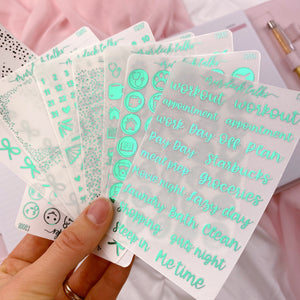 workout workout
appointment appointment
work Day Off Plan
Pay Day Starbucks
meal prep Groceries
Movie night Lazy day
Laundry Bath Clean
Shopping girls night
Sleep in Me time